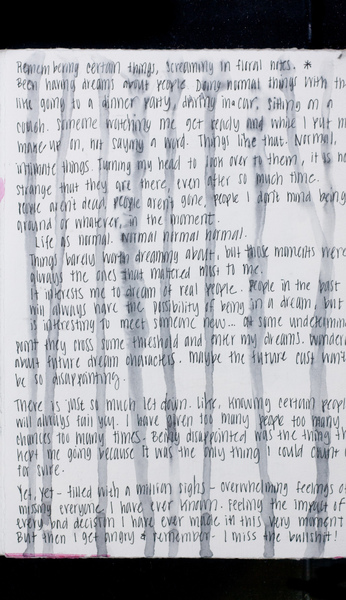 Remembering certain things, screaming in floral notes. *
Been having dreams about people. Doing normal things with the
like going to a dinner party, driving in a car, sitting on a
couch. Someone watching me get ready and while I put m
make up on, not saying a word. Things like that. Normal,
intimate things. Turning my head to look over to them, it is no
strange that they are there, even after so much time.
People aren't dead, people aren't gone, people I don't mind being
around or whatever, in the moment.
Life as normal. Normal normal normal.
Things barely worth dreaming about, but those moments were
always the ones that mattered most to me.
It interests me to dream of real people. People in the past
will always have the possibility of being in a dream, but
is interesting to meet someone new... at some undetermin
point they cross some threshold and enter my dreams. Wonderi
about future dream characters. Maybe the future cast won't
be so disappointing.
There is just so much let down. Like, knowing certain people
will always fail you. I have given too many people too many
chances too many times. Being disappointed was the thing th
kept me going because it was the only thing I could count o
for sure.
Yet, yet - filled with a million sighs - overwhelming feelings of
missing everyone I have ever known. Feeling the impact of
every bad decision I have ever made in this very moment
But then I get angry & remember - I miss the bullshit!